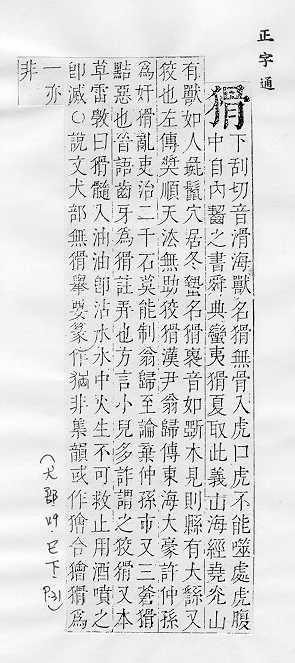 正字通
猾
下刮切音滑海獸名猾無骨入虎口虎不能噬處虎腹
中自內齧之書舜典蠻夷猾夏取此義山海經堯光山
有獸如人彘鬣穴居冬蟄名猾褢音如斲木見則縣有大繇又
狡也左傳奬順天法無助狡猾漢尹翁歸傳東海大豪許仲孫
為奸猾亂吏治二千石莫能制翁歸至論棄仲孫市又三蒼猾
黠惡也晉語齒牙為猾註弄也方言小兒多詐謂之狡猾又本
草雷斆曰猾髓入油油卽沾水水中火生不可救止用酒噴之
卽滅○說文犬部無猾舉要篆作非集韻或作獪合獪猾為
一亦
非
(犬部 巳下 P31)